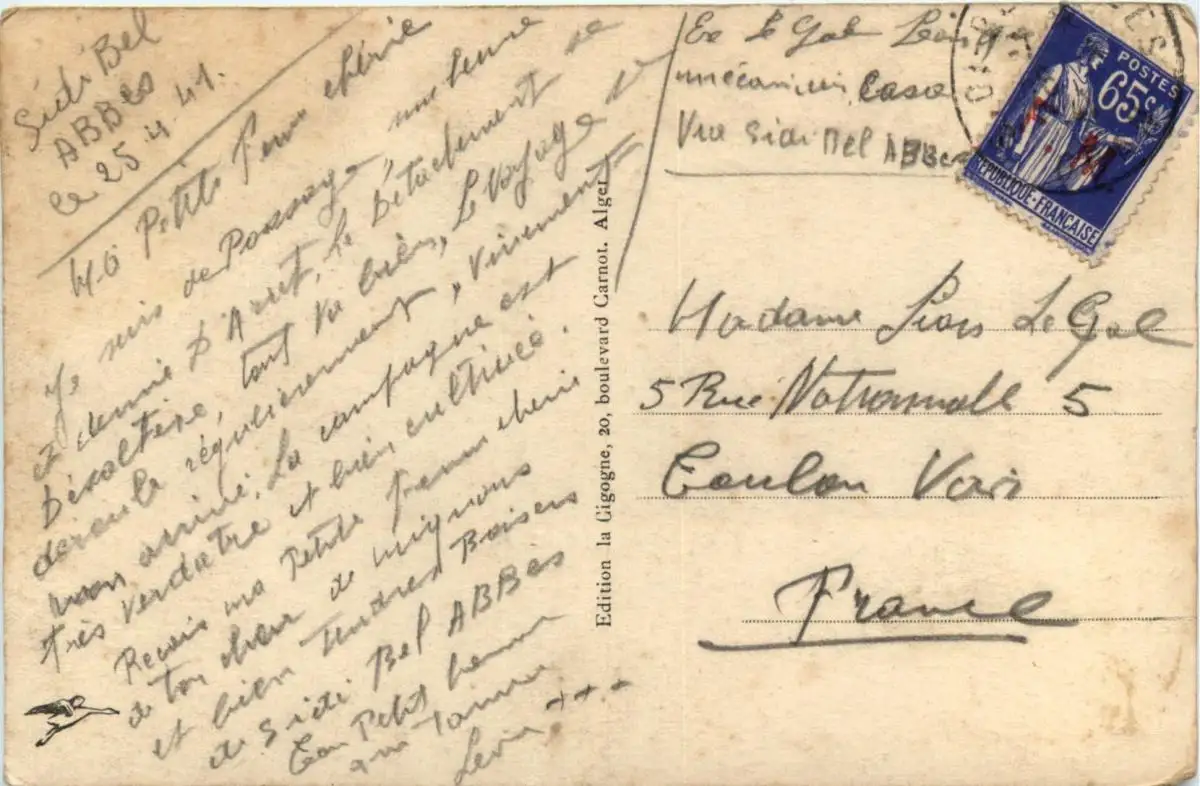 Sidi Bel
ABBes
le 25 4 41.
Ma Petite femme chérie
Je suis de Passage, une heure
et demie D'Arret, le Détachement se
Désaltère, tout va bien, Le Voyage se
deroule régulièrement, Vivement
mon arrivé. La campagne est
très verdatre et bien cultivée.
Recois ma Petite femme cherie
de ton cheri de mignons
et bien tendres Baisers
de Sidi Bel ABBes
Ton Petit homme
qui t'aime
Leon + + . -
Edition la Cigogne, 20, boulevard Carnot. Alger
Ex Le Gal Léon
mécanicien Casa
Via Sidi Bel ABBes
POSTES
65c
REPUBLIQUE-FRANÇAISE
Madame Léon Le Gal
5 Rue Nationnale 5
Toulon Var
France